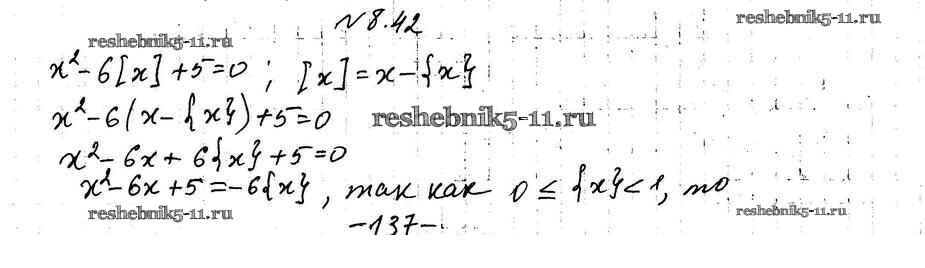 №8.42
reshebnik5-11.ru
reshebnik5-11.ru
x²-6[x]+5=0; [x]=x-{x}
x²-6(x-{x})+5=0 reshebnik5-11.ru
x²-6x+6{x}+5=0
x²-6x+5=-6{x}, так как 0≤{x}<1, то
reshebnik5-11.ru
reshebnik5-11.ru
-137-